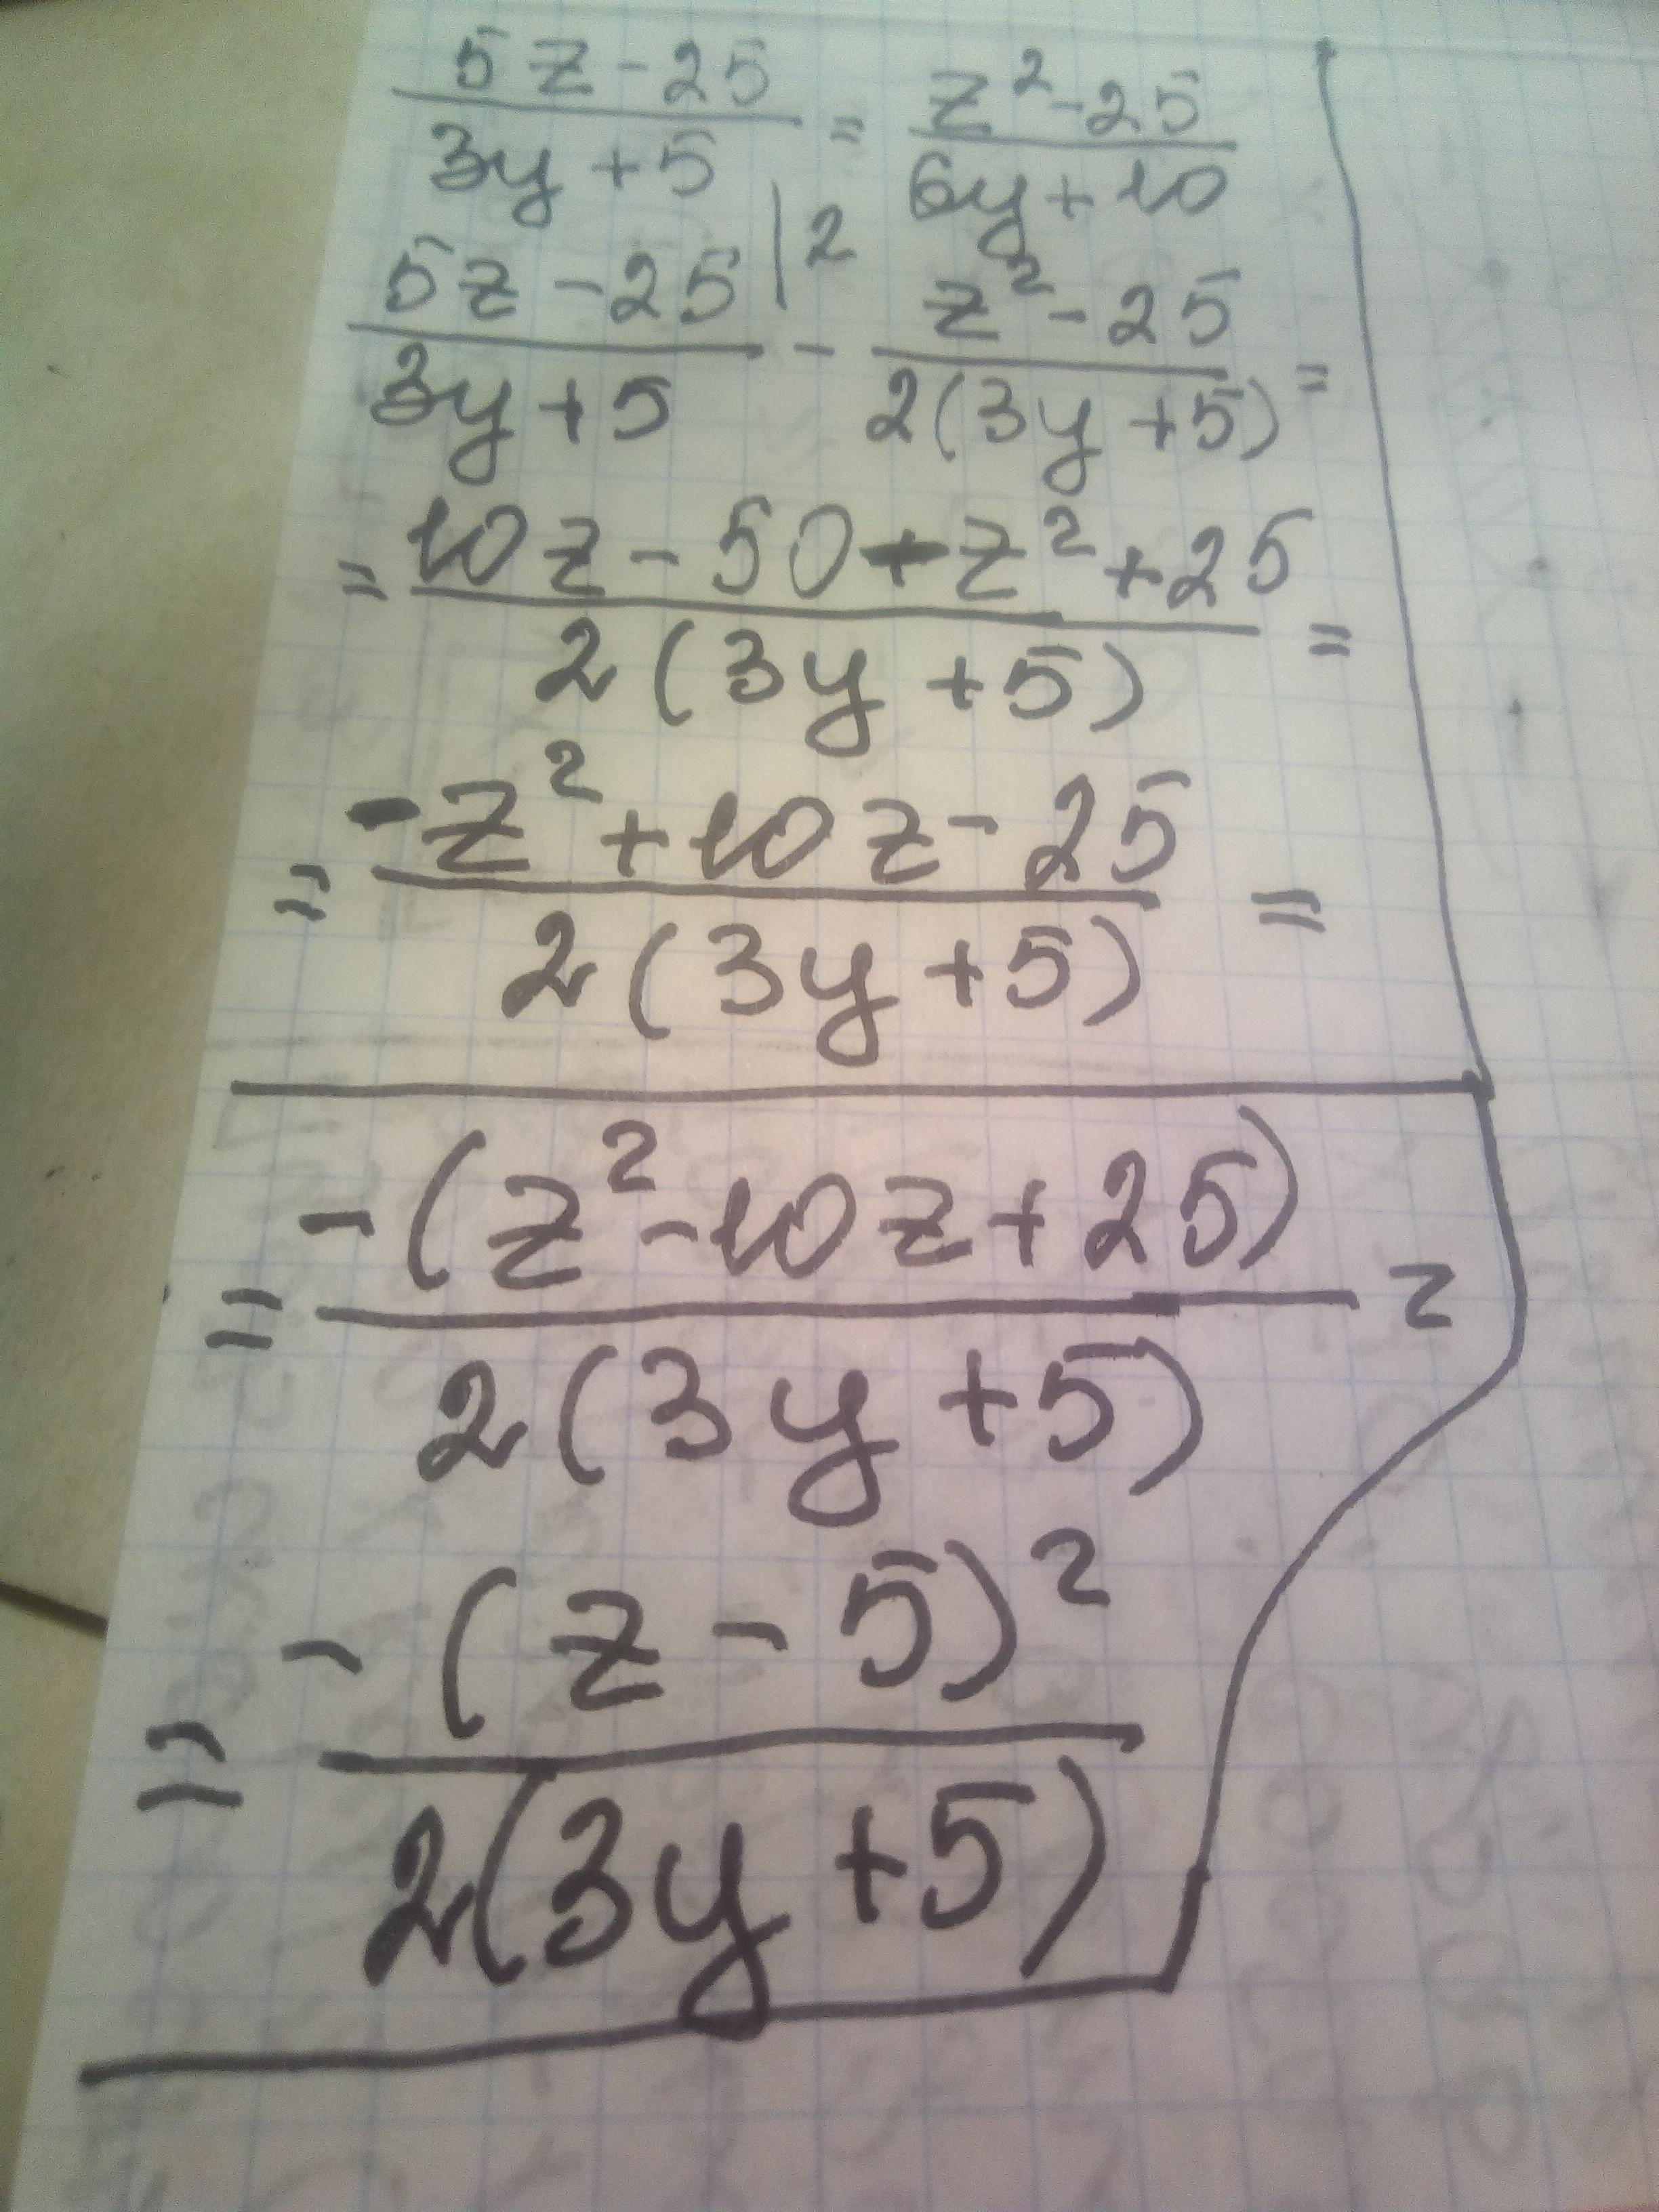 (5z - 25)/(3y + 5) = (z² - 25)/(6y + 10)
(5z - 25)/(3y + 5) |2 - (z² - 25)/(2(3y + 5)) =
= (10z - 50 - z² + 25)/(2(3y + 5)) =
= (-z² + 10z - 25)/(2(3y + 5)) =
= (-(z² - 10z + 25))/(2(3y + 5)) =
= (-(z - 5)²)/(2(3y + 5))